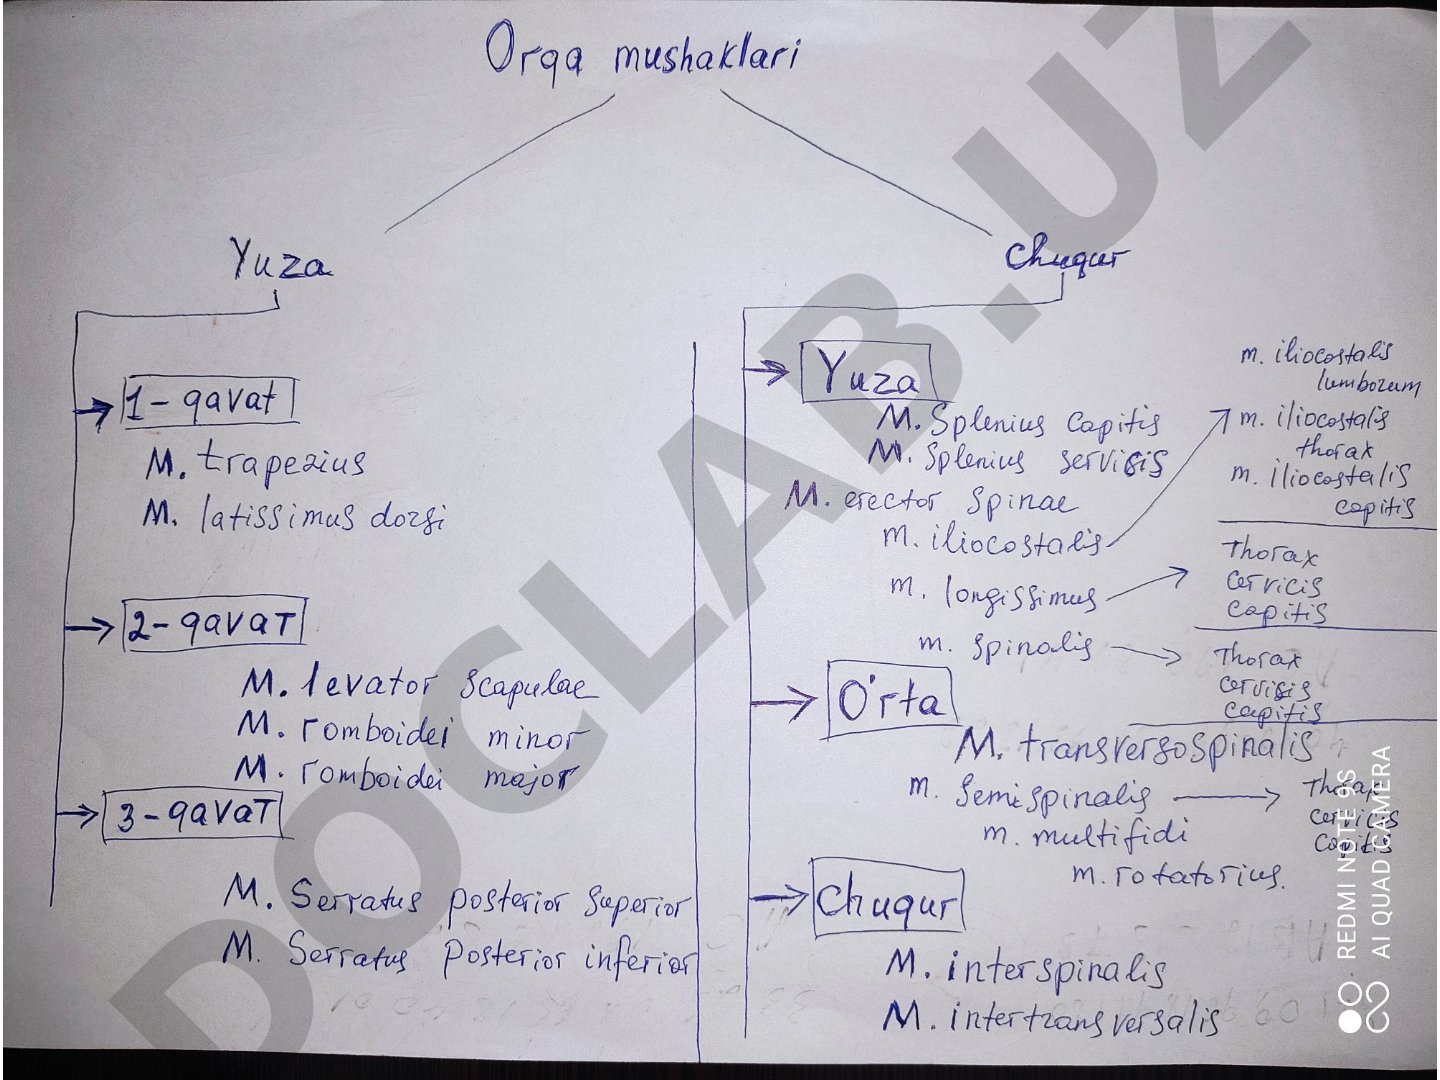 Orqa mushaklari
Yuza
1-qavat
M. trapezius
M. latissimus dorsi
2-qavat
M. levator scapulae
M. romboidei minor
M. romboidei major
3-qavat
M. Serratus posterior superior
M. Serratus posterior inferior
Chuqur
Yuza
M. Splenius capitis
M. Splenius servicis
M. erector spinae
m. iliocostalis
m. iliocostalis
lumborum
m. iliocostalis
thorax
m. iliocostalis
capitis
m. longissimus
Thorax
cervicis
capitis
m. spinalis
Thorax
cervicis
capitis
O'rta
M. transversospinalis
m. Semispinalis
Thorax
cervicis
capitis
m. multifidi
m. rotatorius.
Chuqur
M. interspinalis
M. intertransversalis
DOCLAB.UZ
REDMI NOTE 9S
AI QUAD CAMERA